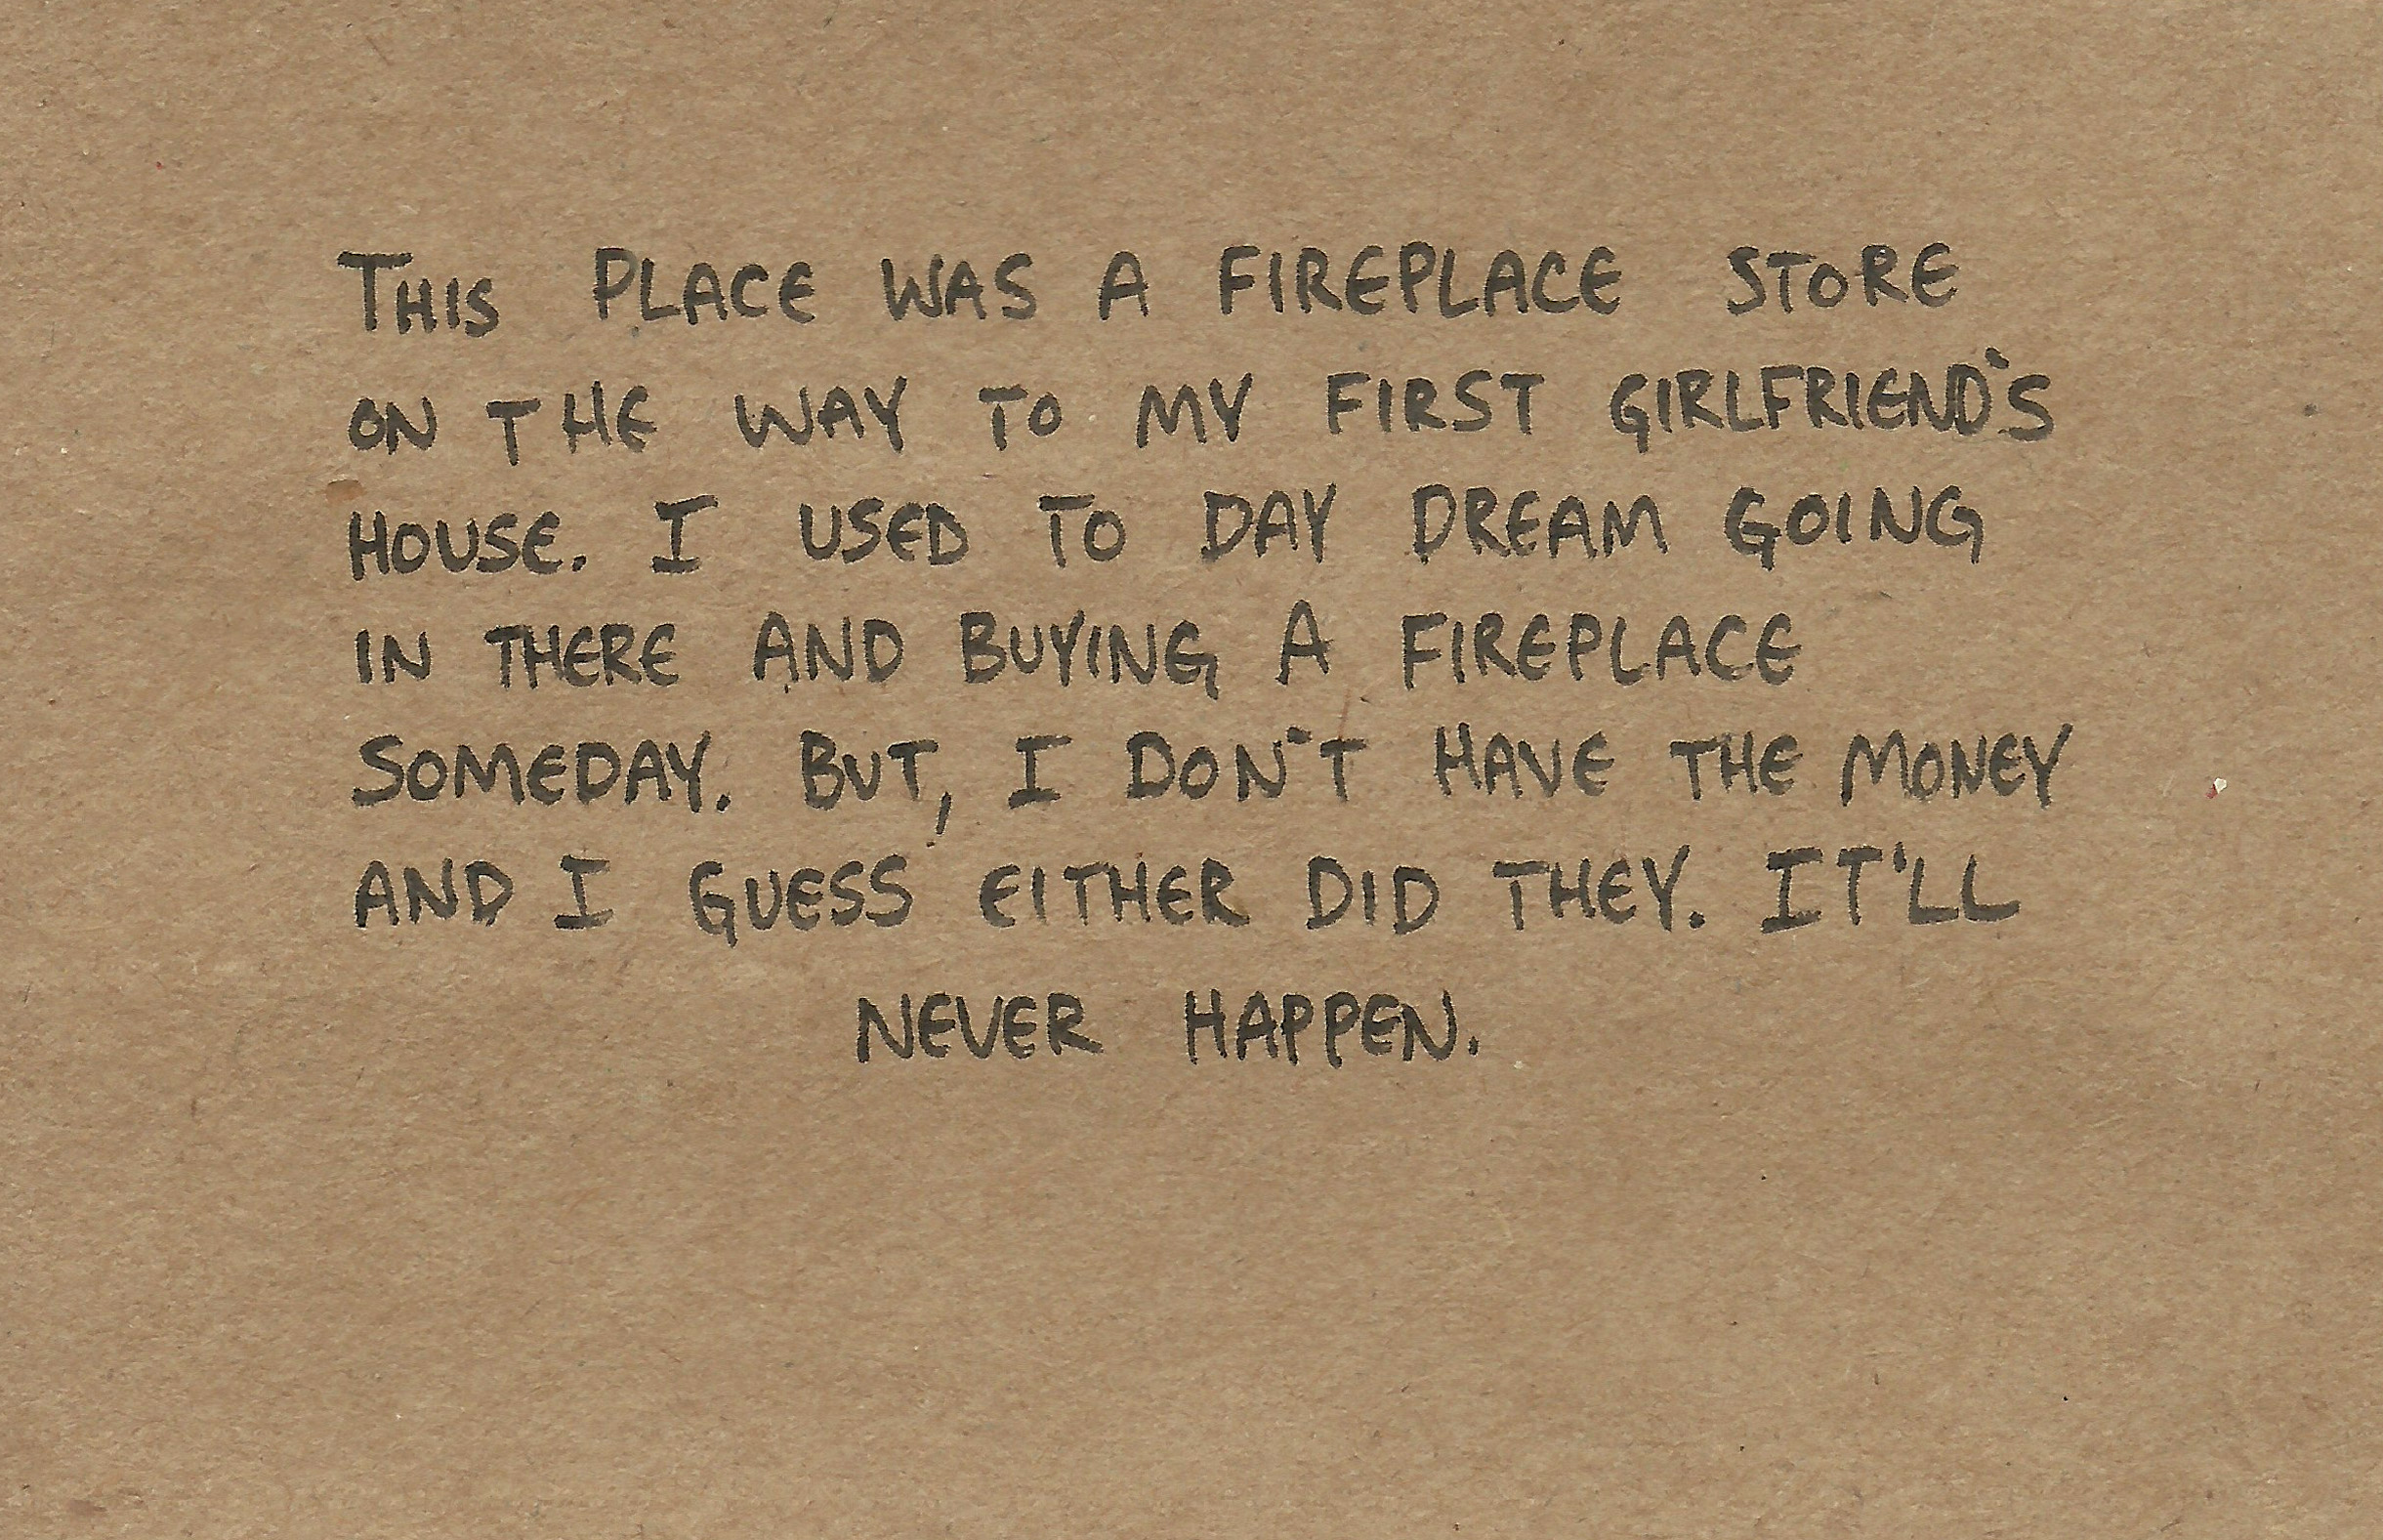 THIS PLACE WAS A FIREPLACE STORE
ON THE WAY TO MY FIRST GIRLFRIEND'S
HOUSE. I USED TO DAY DREAM GOING
IN THERE AND BUYING A FIREPLACE
SOMEDAY. BUT, I DON'T HAVE THE MONEY
AND I GUESS EITHER DID THEY. IT'LL
NEVER HAPPEN.